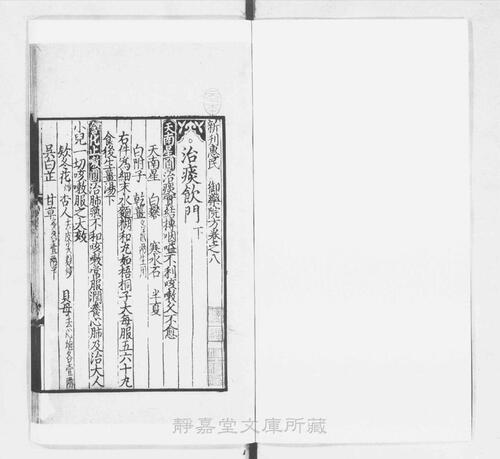 新刊惠民御藥院方卷之八
治痰飲門下
天南星圓治痰實結搏咽嗌不利咳嗽久不愈
天南星 白礬 寒水石 半夏
白附子 乾薑
右件為細末水麵糊和丸如梧桐子大每服五六十丸
食後生薑湯下
圓治肺氣不和咳嗽常服潤養心肺及治大人
小兒一切咳嗽服之大效
款冬花 杏人 貝母
吳白芷 甘草
靜嘉堂文庫所藏